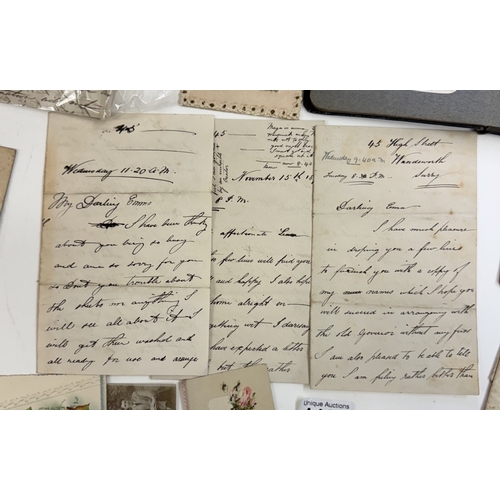 Wednesday 11.20 A.M.
My Darling Emma
I have been think
about you being so busy
and am so sorry for you
so don't you trouble about
the shirts nor anything I
will see all about it I
will get them washed and
all ready for use and arrange
45
November 15th 18
8 P.M.
affectionate
few lines will find you
and happy I also hope
home alright on
getting wet I daresay
have expected a letter
but rather
45 High Street
Wandsworth
Surry
Wednesday 9.40 A.M.
Sunday 8. P.M.
Darling Ema
I have much pleasure
in droping you a few lines
to furnish you with a copy of
my names which I hope you
will succeed in arranging with
the old Governor without any fuss
I am also pleased to be able to tell
you I am feeling rather better than
Unique Auctions